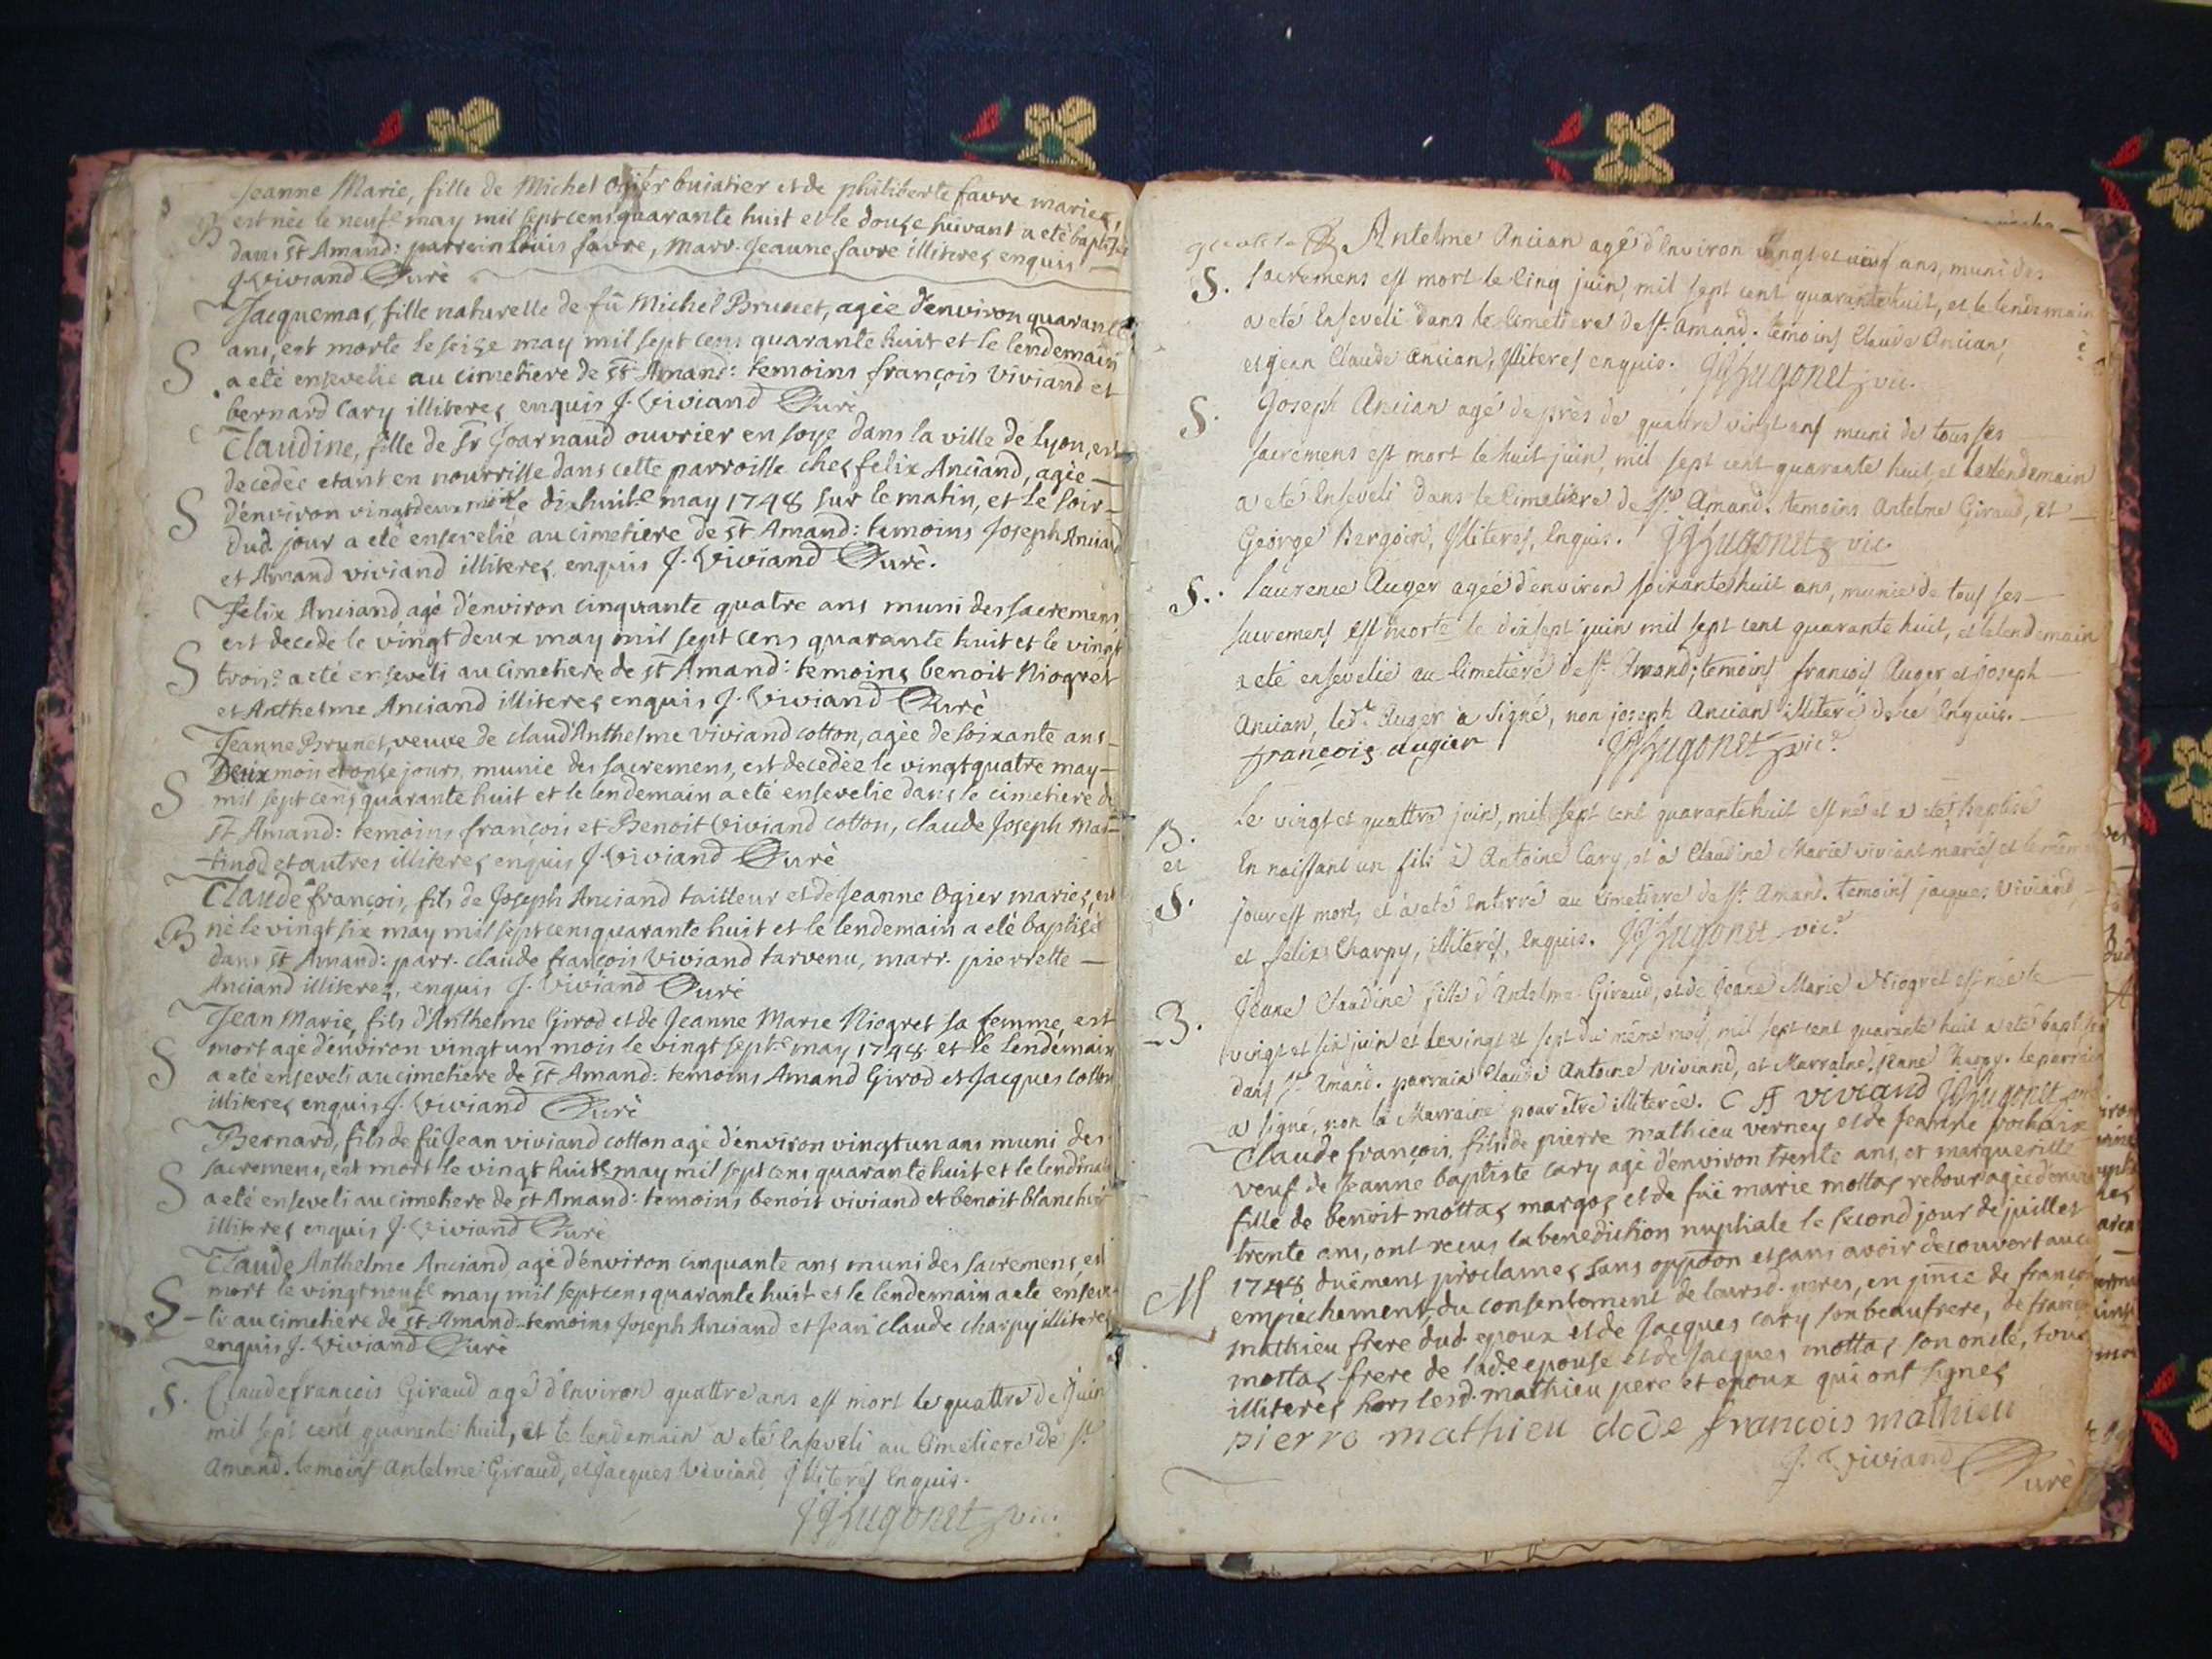 Jeanne Marie, fille de Michel Ogier buiatier et de philiberte favre mariez,
B est née le neuf.e may mil sept cens quarante huit et le douze suivant a eté baptisée
dans st Amand: parrein Louis favre, Marr. Jeanne favre illiterez enquis —
J. Viviand Curè
Jacquemaz, fille naturelle de fû Michel Brunet, agèe d'environ quarante
S ans, est morte le seize may mil sept cens quarante huit et le lendemain
a eté ensevelie au cimetiere de st Amand: temoins françois Viviand et
bernard Cary illiterez enquis J. Viviand Curè
Claudine, fille de Sr Joarnaud ouvrier en soye dans la ville de Lyon, est
decedée etant en nourrisse dans cette parroisse chez felix Anciand, agèe —
S d'environ vingtdeux mois le dixhuit.e may 1748 sur le matin, et le soir —
dud. jour a eté ensevelie au cimetiere de st Amand: temoins Joseph Anciand
et Amand viviand illiterez enquis J. Viviand Curè.
Felix Anciand, agè d'environ cinquante quatre ans muni des sacremens
S est decede le vingt deux may mil sept cens quarante huit et le vingt
trois.e a eté enseveli au cimetiere de st Amand: temoins benoit Niogret
et Anthelme Anciand illiterez enquis J. Viviand Curè
Jeanne Brunet, veuve de claud'Anthelme viviand cotton, agèe de soixante ans —
Deux mois et onze jours, munie des sacremens, est decedèe le vingtquatre may —
S mil sept cens quarante huit et le lendemain a eté ensevelie dans le cimetiere de
st Amand: temoins françois et Benoit Viviand cotton, claude Joseph Mar-
tinod et autres illiterez enquis J. Viviand Curè
Claude françois, fils de Joseph Anciand tailleur et de Jeanne Ogier mariez, est
B nè le vingt six may mil sept cens quarante huit et le lendemain a eté baptisè
dans st Amand: parr. claude françois Viviand tarvenu, marr. pierrette —
Anciand illiterez, enquis J. Viviand Curè
Jean Marie, fils d'Anthelme Girod et de Jeanne Marie Niogret sa femme, est
S mort agè d'environ vingt un mois le vingt sept.e may 1748 et le lendemain
a eté enseveli au cimetiere de st Amand: temoins Amand Girod et Jacques Cotton
illiterez enquis J. Viviand Curè
Bernard, fils de fû Jean viviand cotton agè d'environ vingt un ans muni des
S sacremens, est mort le vingt huit.e may mil sept cens quarante huit et le lendemain
a eté enseveli au cimetiere de st Amand: temoins benoit viviand et benoit blanchet
illiterez enquis J. Viviand Curè
Claude Anthelme Anciand agè d'environ cinquante ans muni des sacremens, est
S mort le vingt neuf.e may mil sept cens quarante huit et le lendemain a eté enseve-
li au cimetiere de st Amand: temoins Joseph Anciand et Jean claude charpy illiterez
enquis J. Viviand Curè
S. Claude francois Giraud agé d'Environ quattre ans est mort le quattre de Juin
mil sept cent quarante huit, et le lendemain a eté Enseveli au Cimetiere de st
Amand. temoins Antelme Giraud, et Jacques Viviand Illiterés Enquis.
JJHugonet vic.
Antelme Ancian agé d'Environ vingt et neuf ans, muni des
S. sacremens est mort le Cinq juin, mil sept cent quarante huit, et le lendemain
a eté Enseveli dans le Cimetiere de st. Amand. temoins Claude Ancian,
et jean Claude Ancian, Illiterés enquis. JJHugonet vic.
S. Joseph Ancian agé de près de quattre vingt ans muni de tous ses —
sacremens est mort le huit juin, mil sept cent quarante huit, et le lendemain
a eté Enseveli dans le Cimetière de st. Amand. temoins Antelme Giraud, et —
George Bergoin, Illiterés, Enquis. JJHugonet vic.
S. Laurence Auger agée d'environ soixante huit ans, munie de tous ses —
sacremens est morte le dixsept juin mil sept cent quarante huit, et le lendemain
a eté ensevelie au Cimetiere de st. Amand; temoins francois Auger et joseph —
Ancian, led.t Auger a signé, non joseph Ancian illiteré de ce Enquis. —
françois augier JJHugonet vic.e
B. Le vingt et quattre juin, mil sept cent quarante huit est né et a eté Baptisé
et En naissant un fils à Antoine Cary, et à Claudine Marie viviant mariés et le même
S. jour est mort, et a eté Enterré au Cimetiere de st. Amand. temoins jacques Viviand,
et felix Charpy, illiterés, Enquis. JJHugonet vic.e
B. Jeane Claudine fille d'Antelme Giraud, et de Jeane Marie Niogret est née le
vingt et six juin et le vingt et sept du même mois, mil sept cent quarante huit a eté baptisée
dans st. Amand. parrain Claude Antoine viviand, et Marraine Jeane Charpy. le parrain
a signé, non la Marraine pour être illiterée. C A viviand JJHugonet vic
Claude françois, fils de pierre mathieu verney et de Jeanne rochaix
veuf de Jeanne baptiste Cary agè d'environ trente ans, et margueritte
fille de benoit mottaz margoz et de fuë marie mottaz rebour agèe d'environ
trente ans, ont recus la benediction nuptiale le second jour de juillet
M 1748, duëment proclamez sans oppôôn et sans avoir decouvert aucun
empêchement, du consentement de leursd. peres, en pñce de françois
mathieu frere dud. epoux et de Jacques Cary son beaufrere, de françois
mottaz frere de lad.e epouse et de Jacques mottaz son oncle, tous
illiterez hors lesd. mathieu pere et epoux qui ont signez
pierre mathieu françois mathieu
J. Viviand Curè